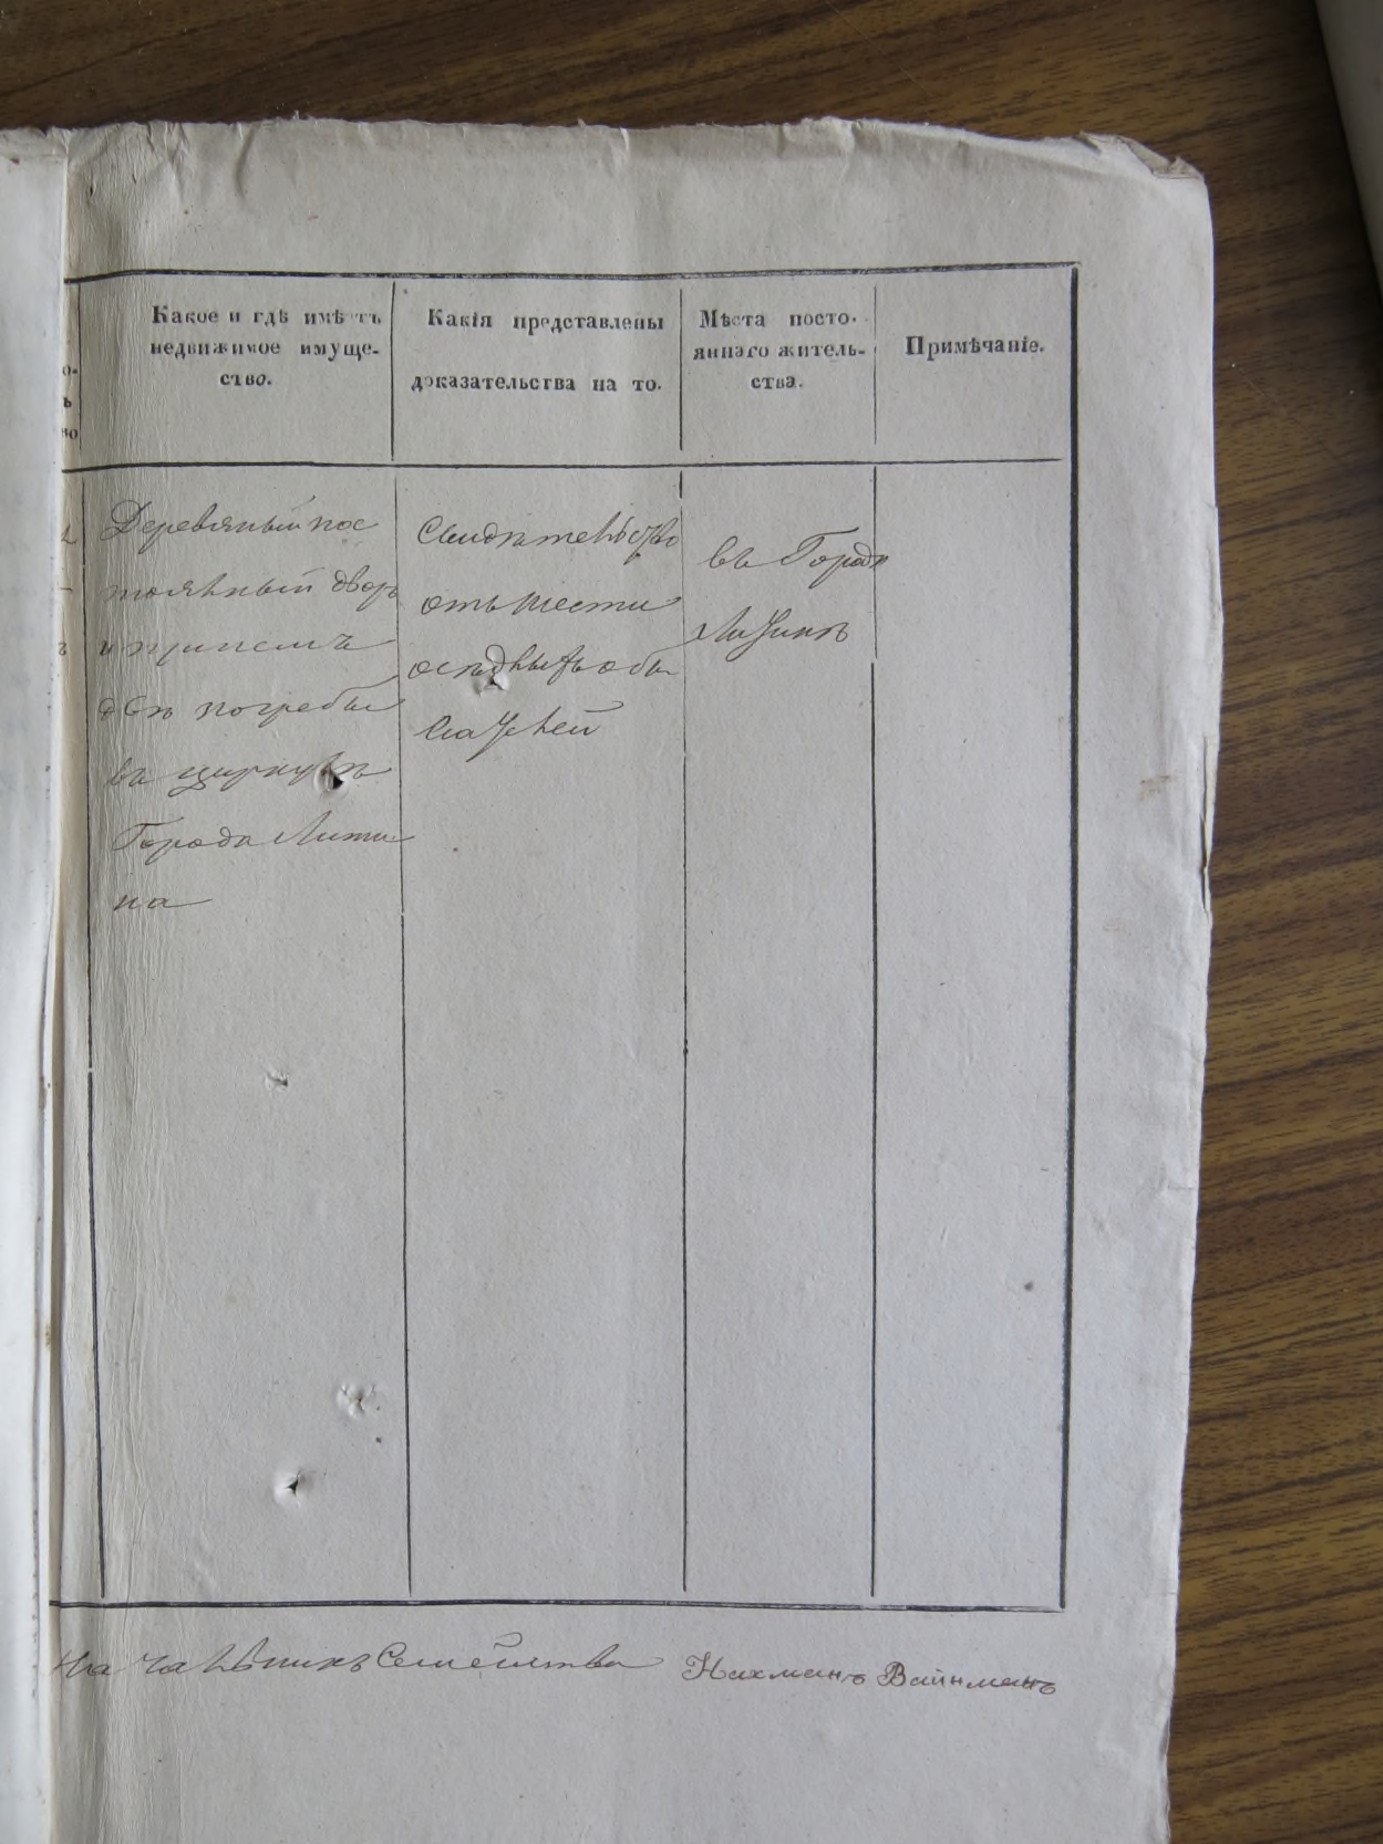 Какое и гдѣ имѣетъ
недвижимое имуще-
ство.
Какія представлены
доказательства на то.
Мѣста посто-
яннаго житель-
ства.
Примѣчаніе.
о-
ь
но
Деревяный пос
тоялный дворъ
и при немъ
двѣ погребы
въ
Города Лити
на
Свидѣтельство
отъ шести
осѣдлыхъ обы
вателей
въ Городѣ
Литинѣ
Началникъ Семейства Нахманъ Вайнманъ